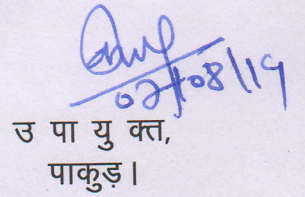 02/08/19
उ पा यु क्त,
पाकुड़।